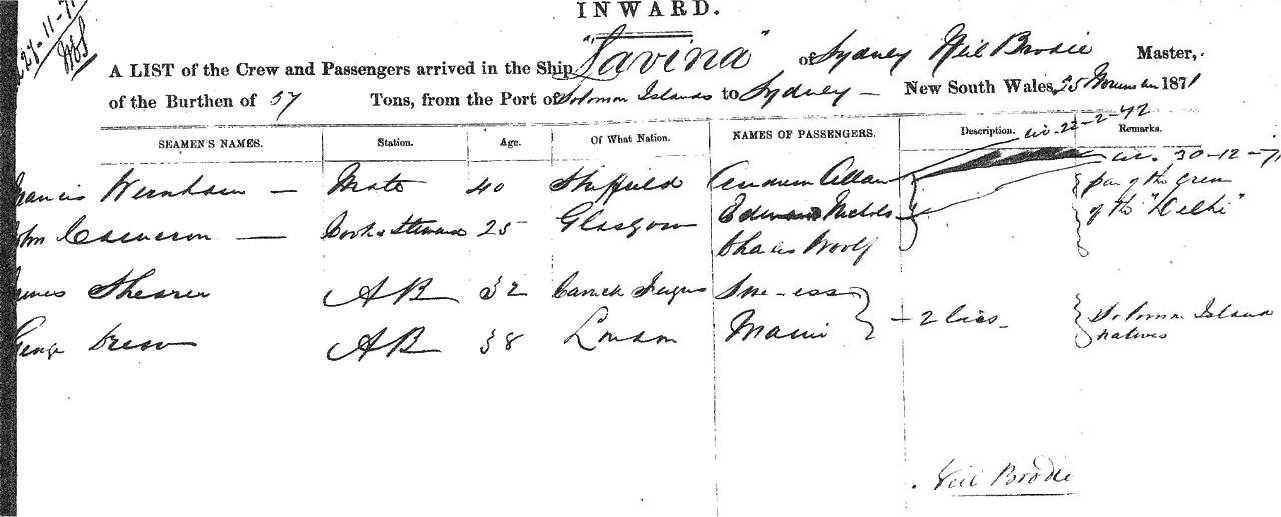 INWARD.
27-11-71
A LIST of the Crew and Passengers arrived in the Ship "Lavina" of Sydney Neil Brodie Master,
of the Burthen of 57 Tons, from the Port of Solomon Islands to Sydney — New South Wales, 25 November 1871
SEAMEN'S NAMES. Station. Age. Of What Nation. NAMES OF PASSENGERS. Description. Remarks.
22-2-72
30-12-71
Francis Wernham — Mate 40 Sheffield Andrew Allan par of the Crew
John Cameron — Cook & Steward 25 Glasgow Edward Nichols of the "Delhi"
Charles Woolf
James Shearer AB 32 Carrick Fergus
George Drew AB 38 London — 2 Solomon Island
natives
Neil Brodie